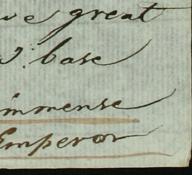 great
base
immense
Emperor